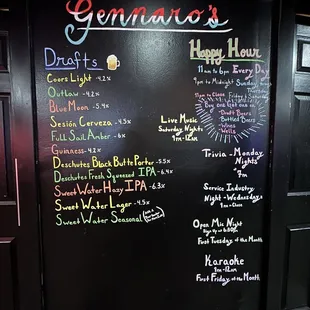 Gennaro's
Drafts
Coors Light - 4.2%
Outlaw - 4.2%
Blue Moon - 5.4%
Sesión Cerveza - 4.5%
Full Sail Amber - 6%
Guinness - 4.2%
Deschutes Black Butte Porter - 5.5%
Deschutes Fresh Squeezed IPA - 6.4%
SweetWater Hazy IPA - 6.3%
Sweet Water Lager - 4.5%
Sweet Water Seasonal
Happy Hour
11am to 6pm Every Day
9pm to Midnight Sunday
Thursday
11pm to Close Friday
Day
Draft Beers
Bottled Beers
Wines
Wells
Live Music
Saturday Nights
9pm-12am
Trivia - Monday
Nights
9pm
Service Industry
Night - Wednesdays
9pm to Close
Open Mic Night
Sign Up at
First Tuesday of the Month
Karaoke
9pm-12am
First Friday of the Month